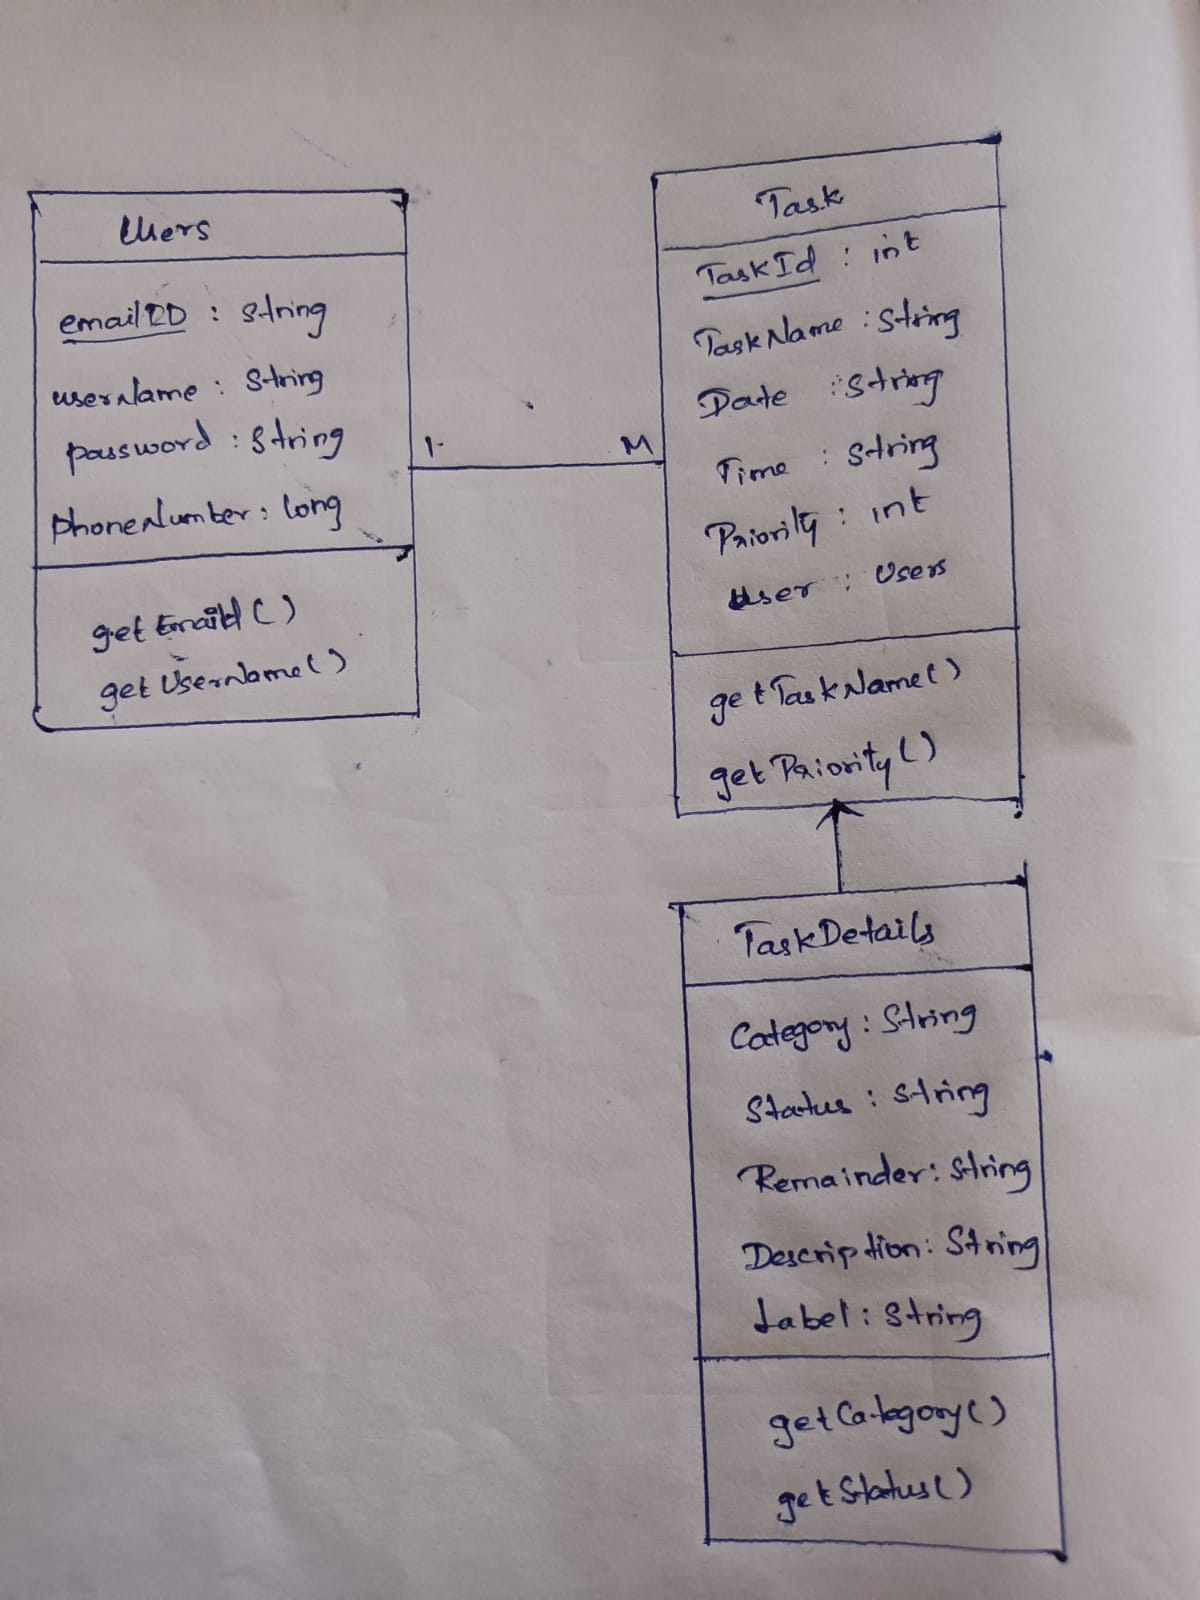 Users
emailID : String
userName : String
password : String
phoneNumber : long
getEmailId()
getUserName()
1 M
Task
TaskId : int
TaskName : String
Date : String
Time : String
Priority : int
User : Users
getTaskName()
getPriority()
TaskDetails
Category : String
Status : String
Remainder : String
Description : String
Label : String
getCategory()
getStatus()